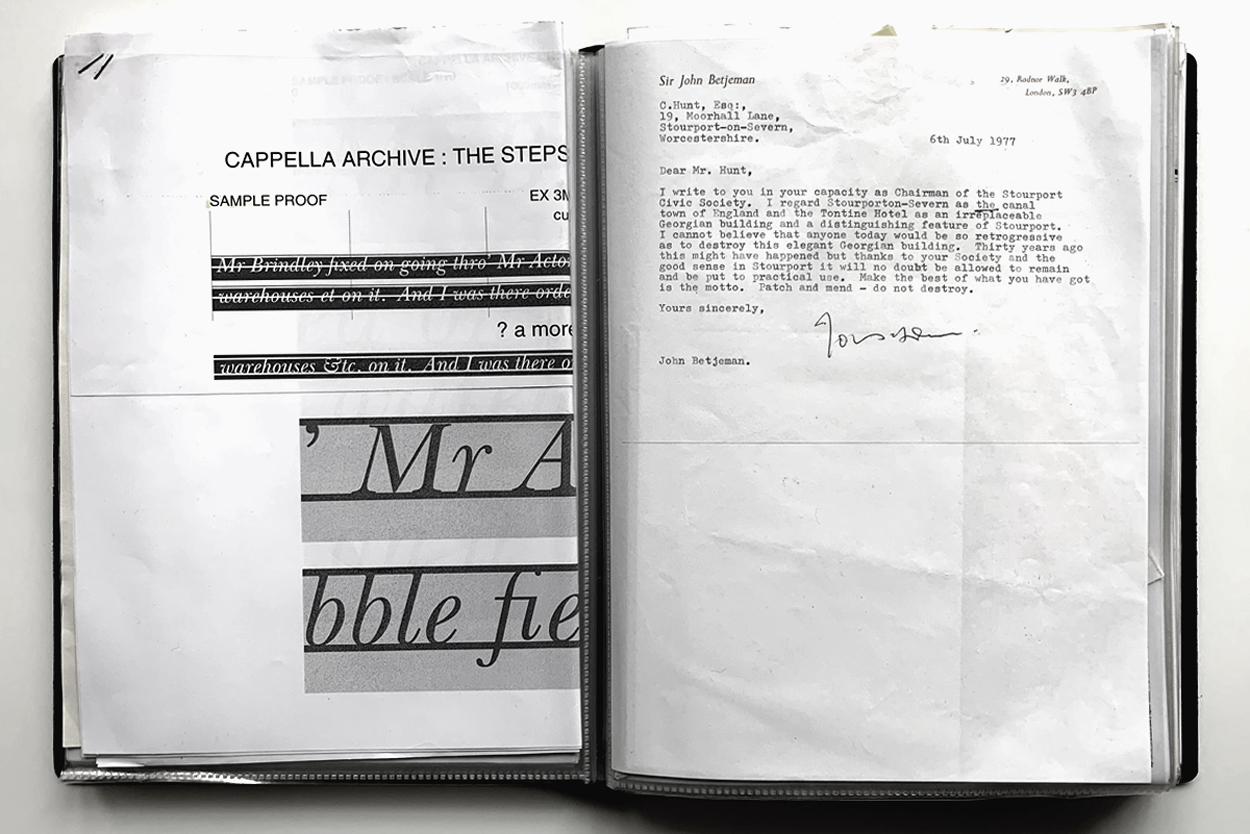 CAPPELLA ARCHIVE : THE STEPS
SAMPLE PROOF
EX 3M
cu
Mr Brindley fixed on going thro' Mr Acto
warehouses et on it. And I was there orde
? a more
warehouses &tc. on it. And I was there o
' Mr A
bble fie
Sir John Betjeman
29, Radnor Walk,
London, SW3 4BP
C.Hunt, Esq:,
19, Moorhall Lane,
Stourport-on-Severn,
Worcestershire.
6th July 1977
Dear Mr. Hunt,
I write to you in your capacity as Chairman of the Stourport
Civic Society. I regard Stourporton-Severn as the canal
town of England and the Tontine Hotel as an irreplaceable
Georgian building and a distinguishing feature of Stourport.
I cannot believe that anyone today would be so retrogressive
as to destroy this elegant Georgian building. Thirty years ago
this might have happened but thanks to your Society and the
good sense in Stourport it will no doubt be allowed to remain
and be put to practical use. Make the best of what you have got
is the motto. Patch and mend - do not destroy.
Yours sincerely,
John Betjeman.